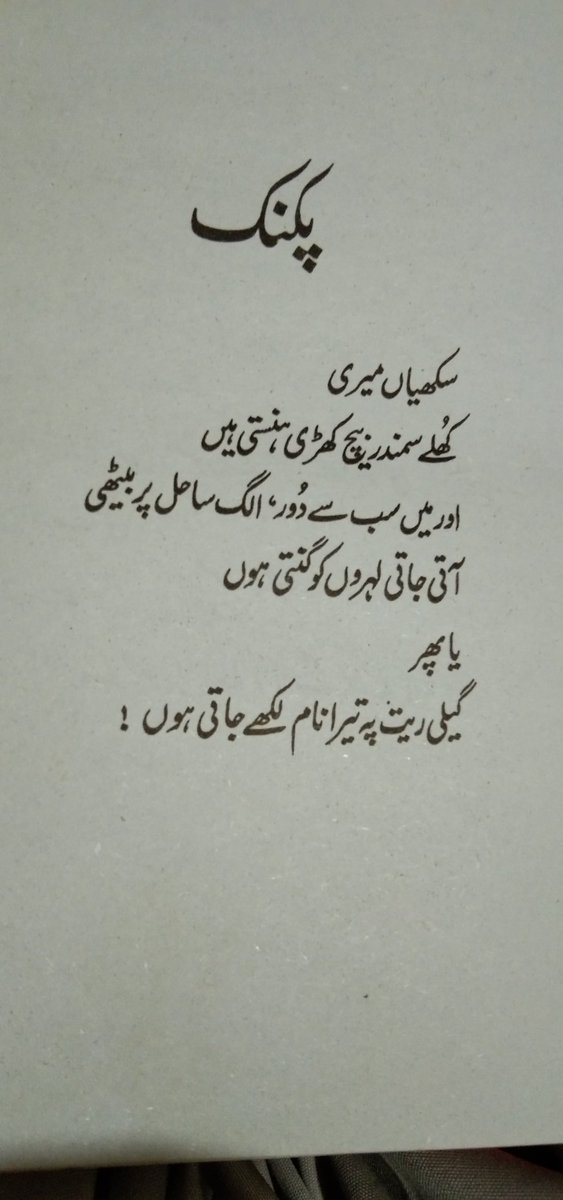 پکنک
سکھیاں میری
کھُلے سمندر بیچ کھڑی ہنستی ہیں
اور میں سب سے دُور، الگ ساحل پر بیٹھی
آتی جاتی لہروں کو گنتی ہوں
یا پھر
گیلی ریت پہ تیرا نام لکھے جاتی ہوں !